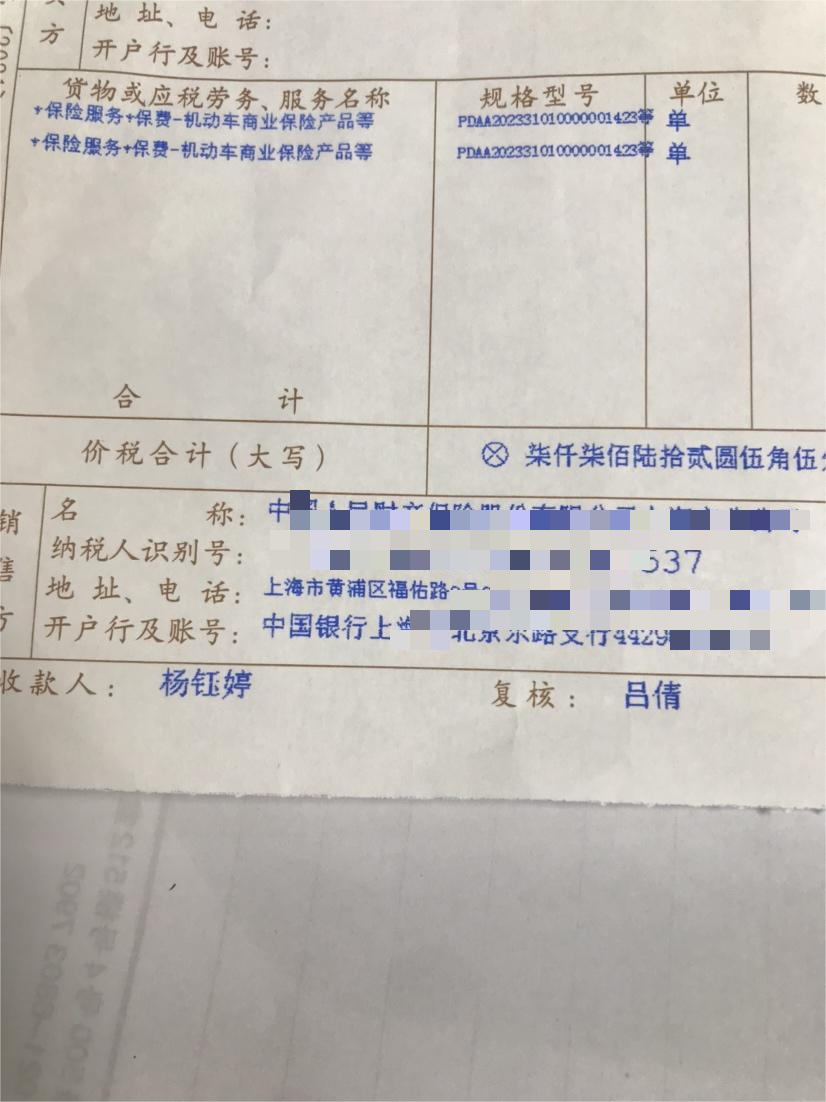 方 地址、电话：
开户行及账号：
货物或应税劳务、服务名称 规格型号 单位 数
*保险服务*保费-机动车商业保险产品等 PDAA202331010000001423等 单
*保险服务*保费-机动车商业保险产品等 PDAA202331010000001423等 单
合 计
价税合计（大写） ⊗ 柒仟柒佰陆拾贰圆伍角伍
销售方
名 称：
纳税人识别号： 537
地址、电话：上海市黄浦区福佑路
开户行及账号：中国银行上 北京东路支行4429
收款人： 杨钰婷 复核： 吕倩